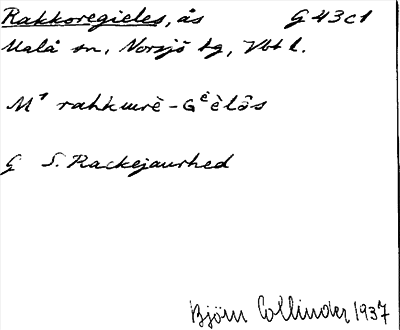 Rakkoregieles, ås G 43c1
Malå sn, Norsjö tg, Vbt l.
M¹ rahkurè - Gèèlâs
G S. Rackejaurhed
Björn Collinder 1937